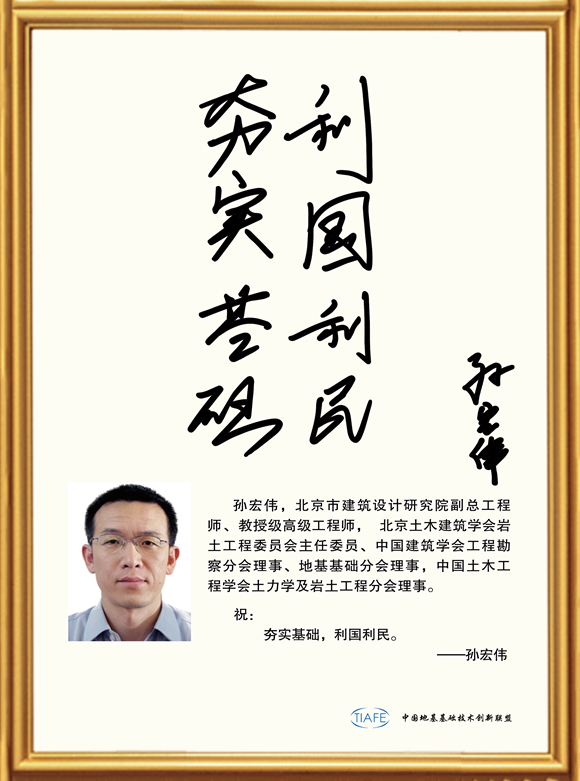 夯实基础
利国利民
孙宏伟
孙宏伟，北京市建筑设计研究院副总工程
师、教授级高级工程师， 北京土木建筑学会岩
土工程委员会主任委员、中国建筑学会工程勘
察分会理事、地基基础分会理事，中国土木工
程学会土力学及岩土工程分会理事。
祝：
夯实基础，利国利民。
——孙宏伟
TIAFE 中国地基基础技术创新联盟